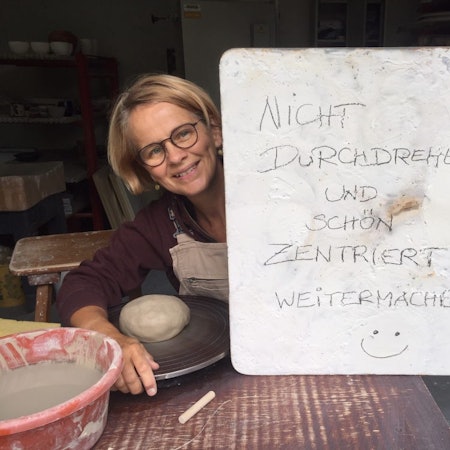 NICHT
DURCHDREHE
UND
SCHÖN
ZENTRIERT
WEITERMACHE